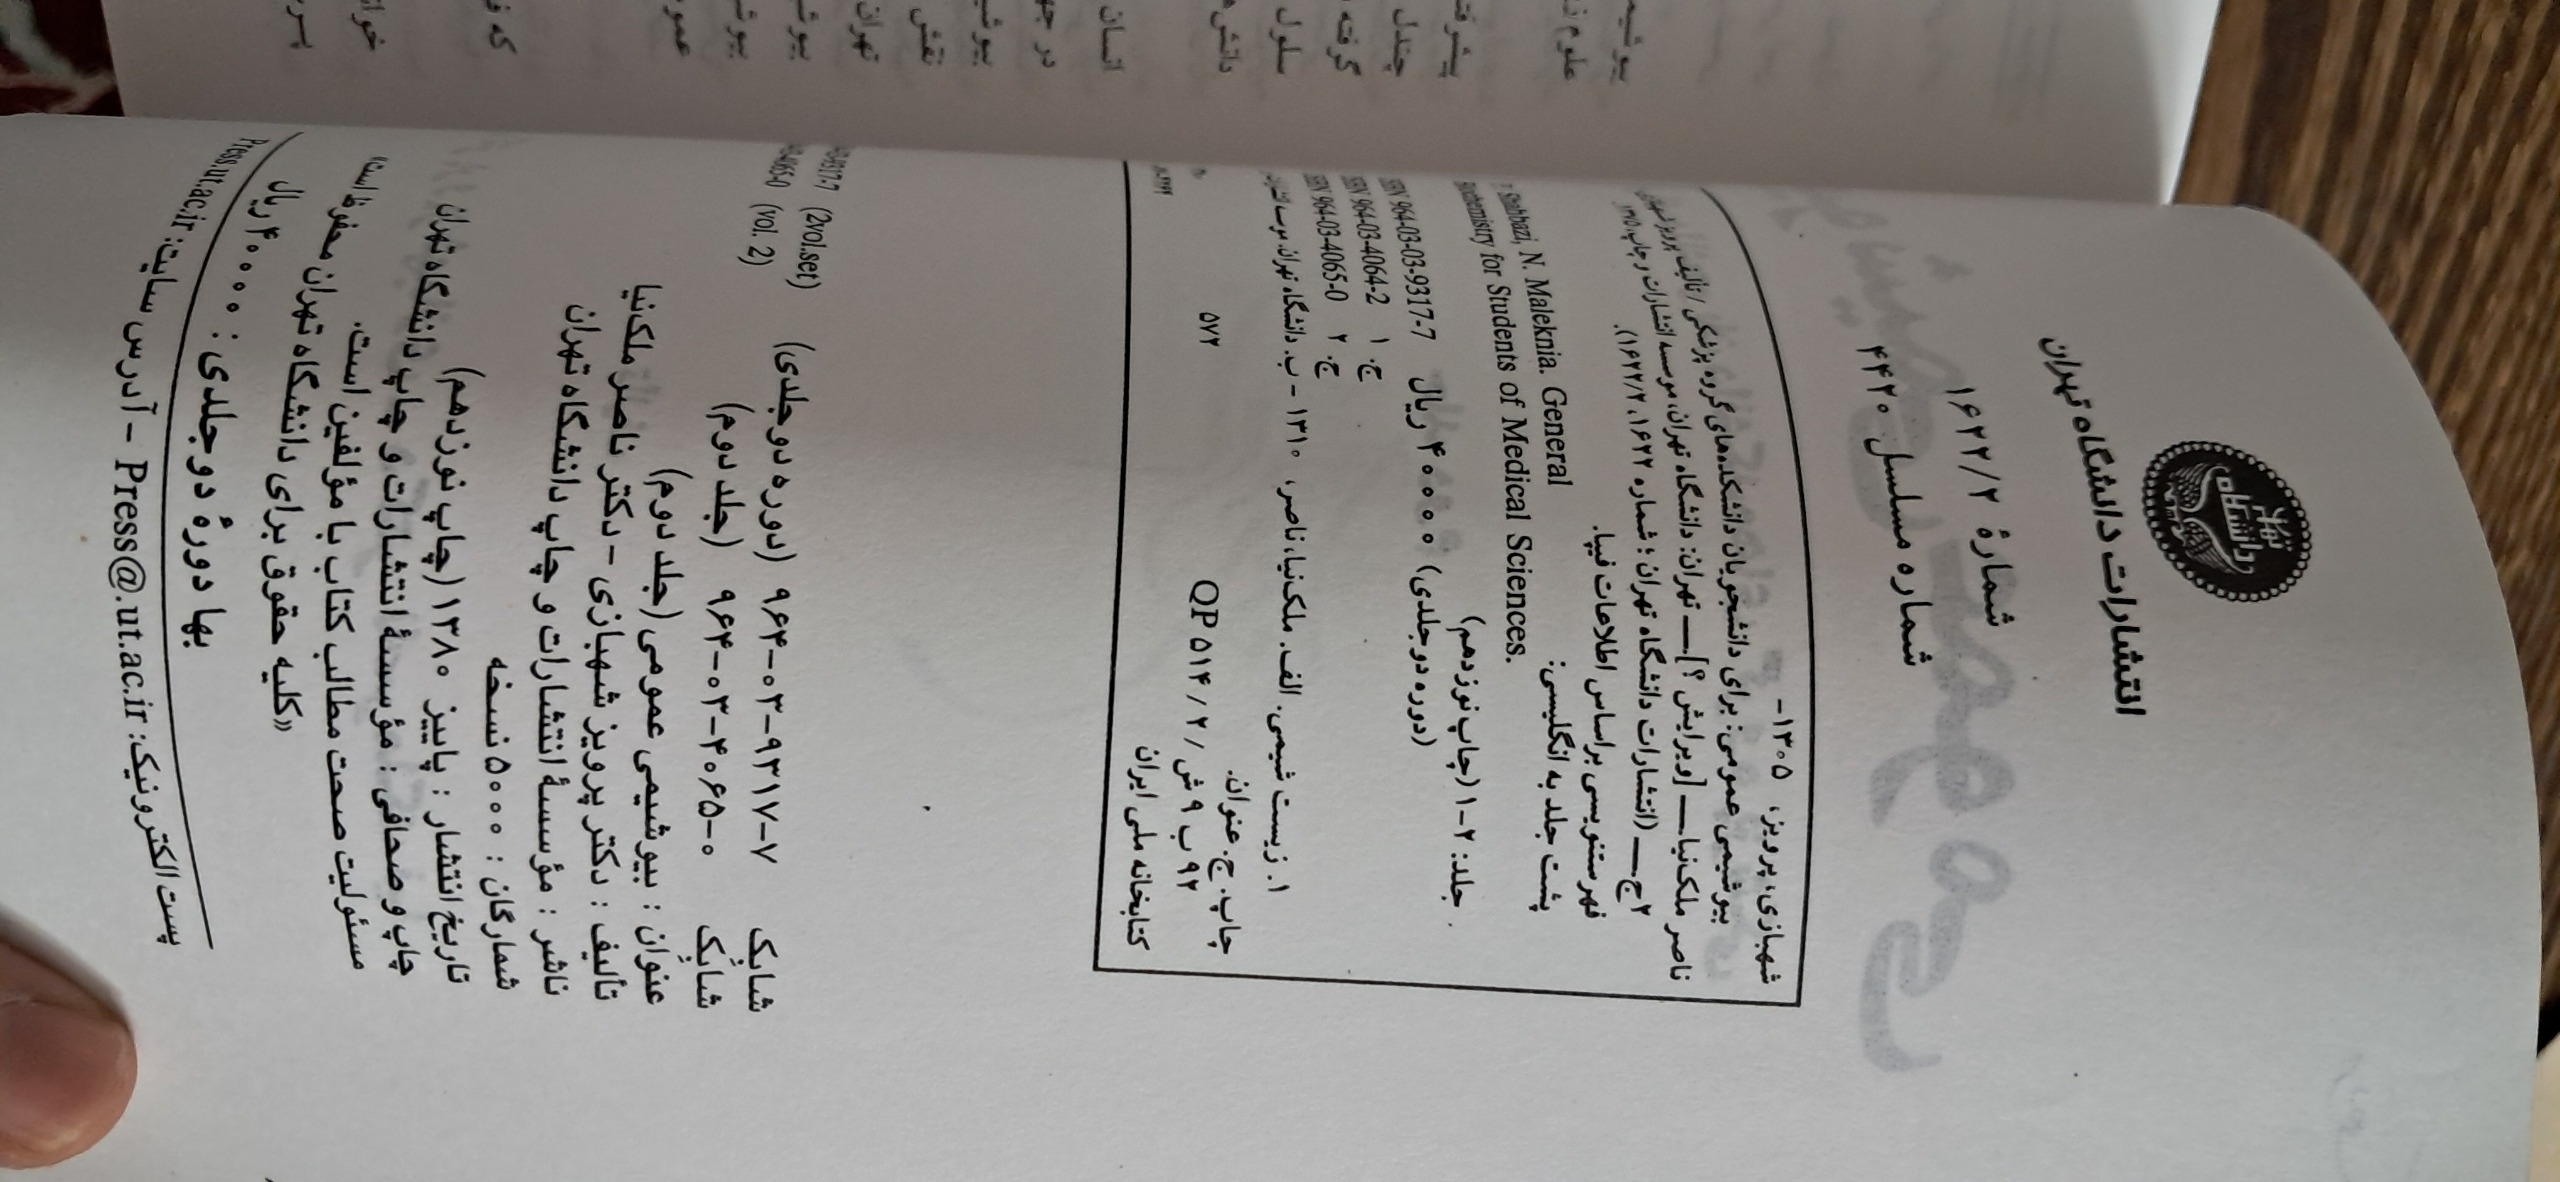 دانشگاه تهران
انتشارات دانشگاه تهران
شمارهٔ ۱۶۲۲/۲
شماره مسلسل ۴۴۲۰
شهبازی، پرویز، ۱۳۰۵-
بیوشیمی عمومی: برای دانشجویان دانشکده‌های گروه پزشکی / تألیف پرویز شهبازی
ناصر ملک‌نیا.__ [ویرایش ؟]__ تهران: دانشگاه تهران، موسسه انتشارات و چاپ، ۱۳۸۰
۲ج__ (انتشارات دانشگاه تهران؛ شماره ۱۶۲۲، ۱۶۲۲/۲).
فهرستنویسی براساس اطلاعات فیپا.
پشت جلد به انگلیسی:
Shahbazi, N. Maleknia. General
for Students of Medical Sciences.
جلد: ۲-۱ (چاپ نوزدهم)
964-03-9317-7 ۴۰۰۰۰ ریال (دوره دو جلدی)
964-03-4064-2 ج. ۱
964-03-4065-0 ج. ۲
۱. زیست شیمی. الف. ملک‌نیا، ناصر، ۱۳۱۰ - ب. دانشگاه تهران. موسسه
چاپ. ج. عنوان.
۹۲ ب ۹ ش / QP ۵۱۴/۲ ۵۷۲
کتابخانه ملی ایران
شابک ۷-۹۳۱۷-۰۳-۹۶۴ (دوره دو جلدی) (2vol.set)
شابک ۰-۴۰۶۵-۰۳-۹۶۴ (جلد دوم) (vol. 2)
عنوان : بیوشیمی عمومی (جلد دوم)
تألیف : دکتر پرویز شهبازی - دکتر ناصر ملک‌نیا
ناشر : مؤسسهٔ انتشارات و چاپ دانشگاه تهران
شمارگان : ۵۰۰۰ نسخه
تاریخ انتشار : پاییز ۱۳۸۰ (چاپ نوزدهم)
چاپ و صحافی : مؤسسهٔ انتشارات و چاپ دانشگاه تهران
مسئولیت صحت مطالب کتاب با مؤلفین است.
«کلیه حقوق برای دانشگاه تهران محفوظ است»
بها دورهٔ دو جلدی : ۴۰۰۰۰ ریال
پست الکترونیک: Press@.ut.ac.ir - آدرس سایت: Press.ut.ac.ir